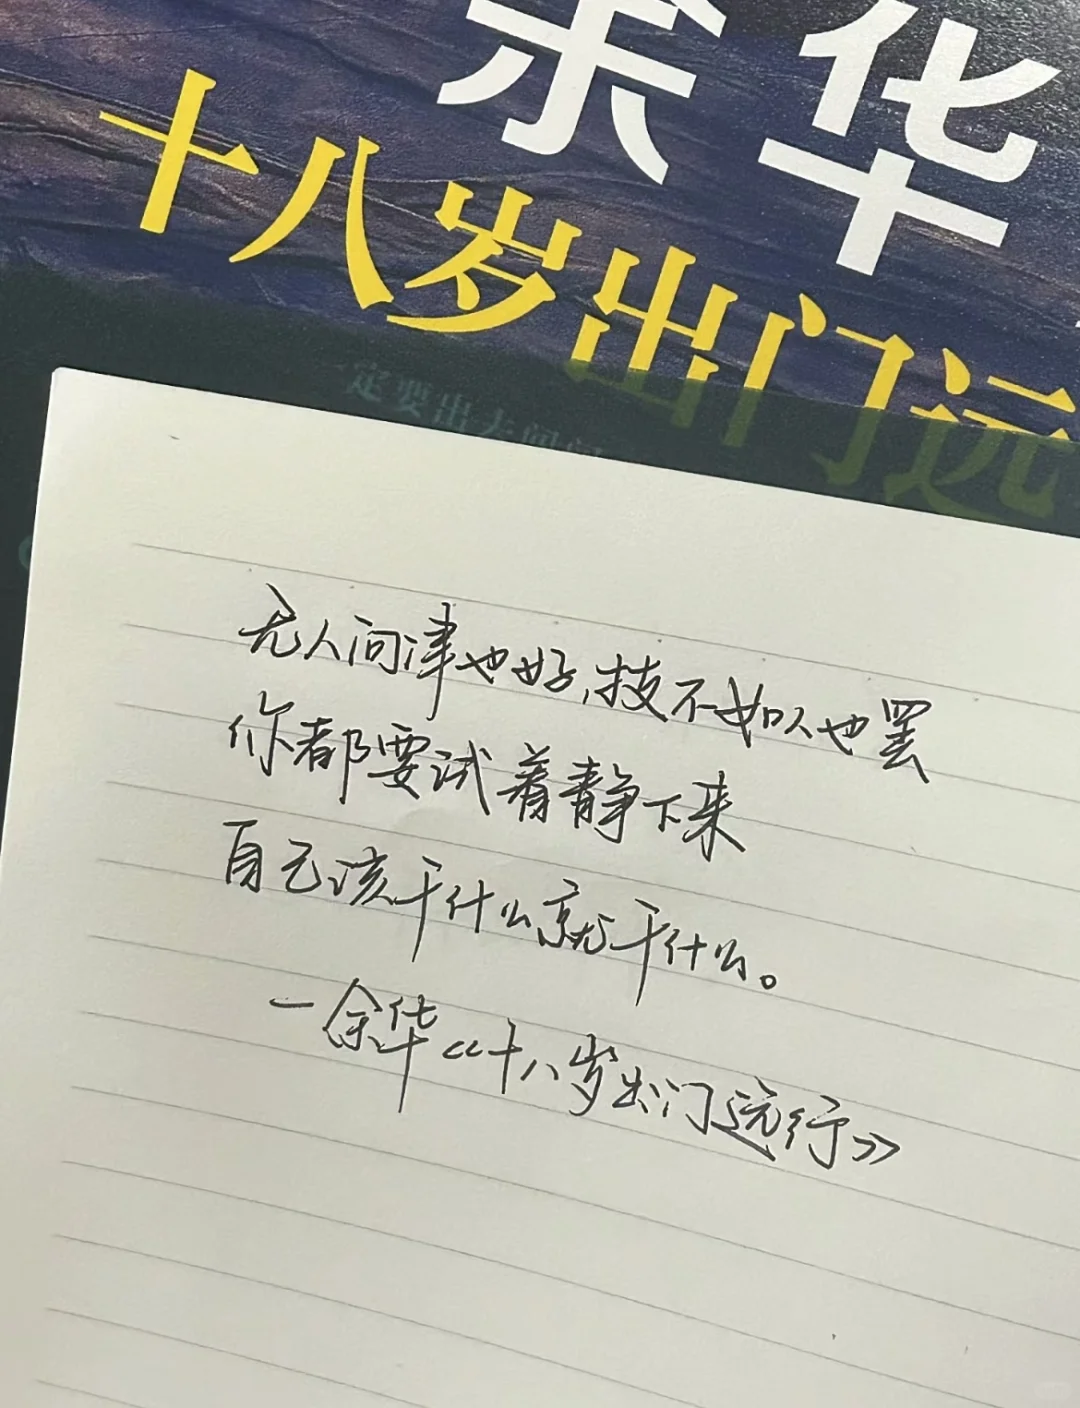 余华
十八岁出门远
一定要出去闯闯
无人问津也好,技不如人也罢
你都要试着静下来
自己该干什么就干什么。
—余华《十八岁出门远行》